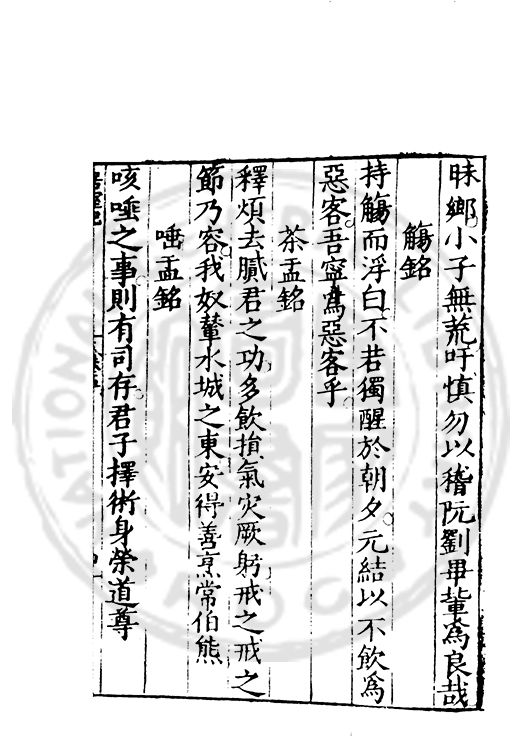 昧鄉小子無荒吁慎勿以嵇阮劉畢輩爲良哉
觴銘
持觴而浮白不若獨醒於朝夕元結以不飲爲
惡客吾寧爲惡客乎
茶盂銘
釋煩去膩君之功多飲損氣灾厥躬戒之戒之
節乃容我奴輦水城之東安得善烹常伯熊
唾盂銘
咳唾之事則有司存君子擇術身榮道尊